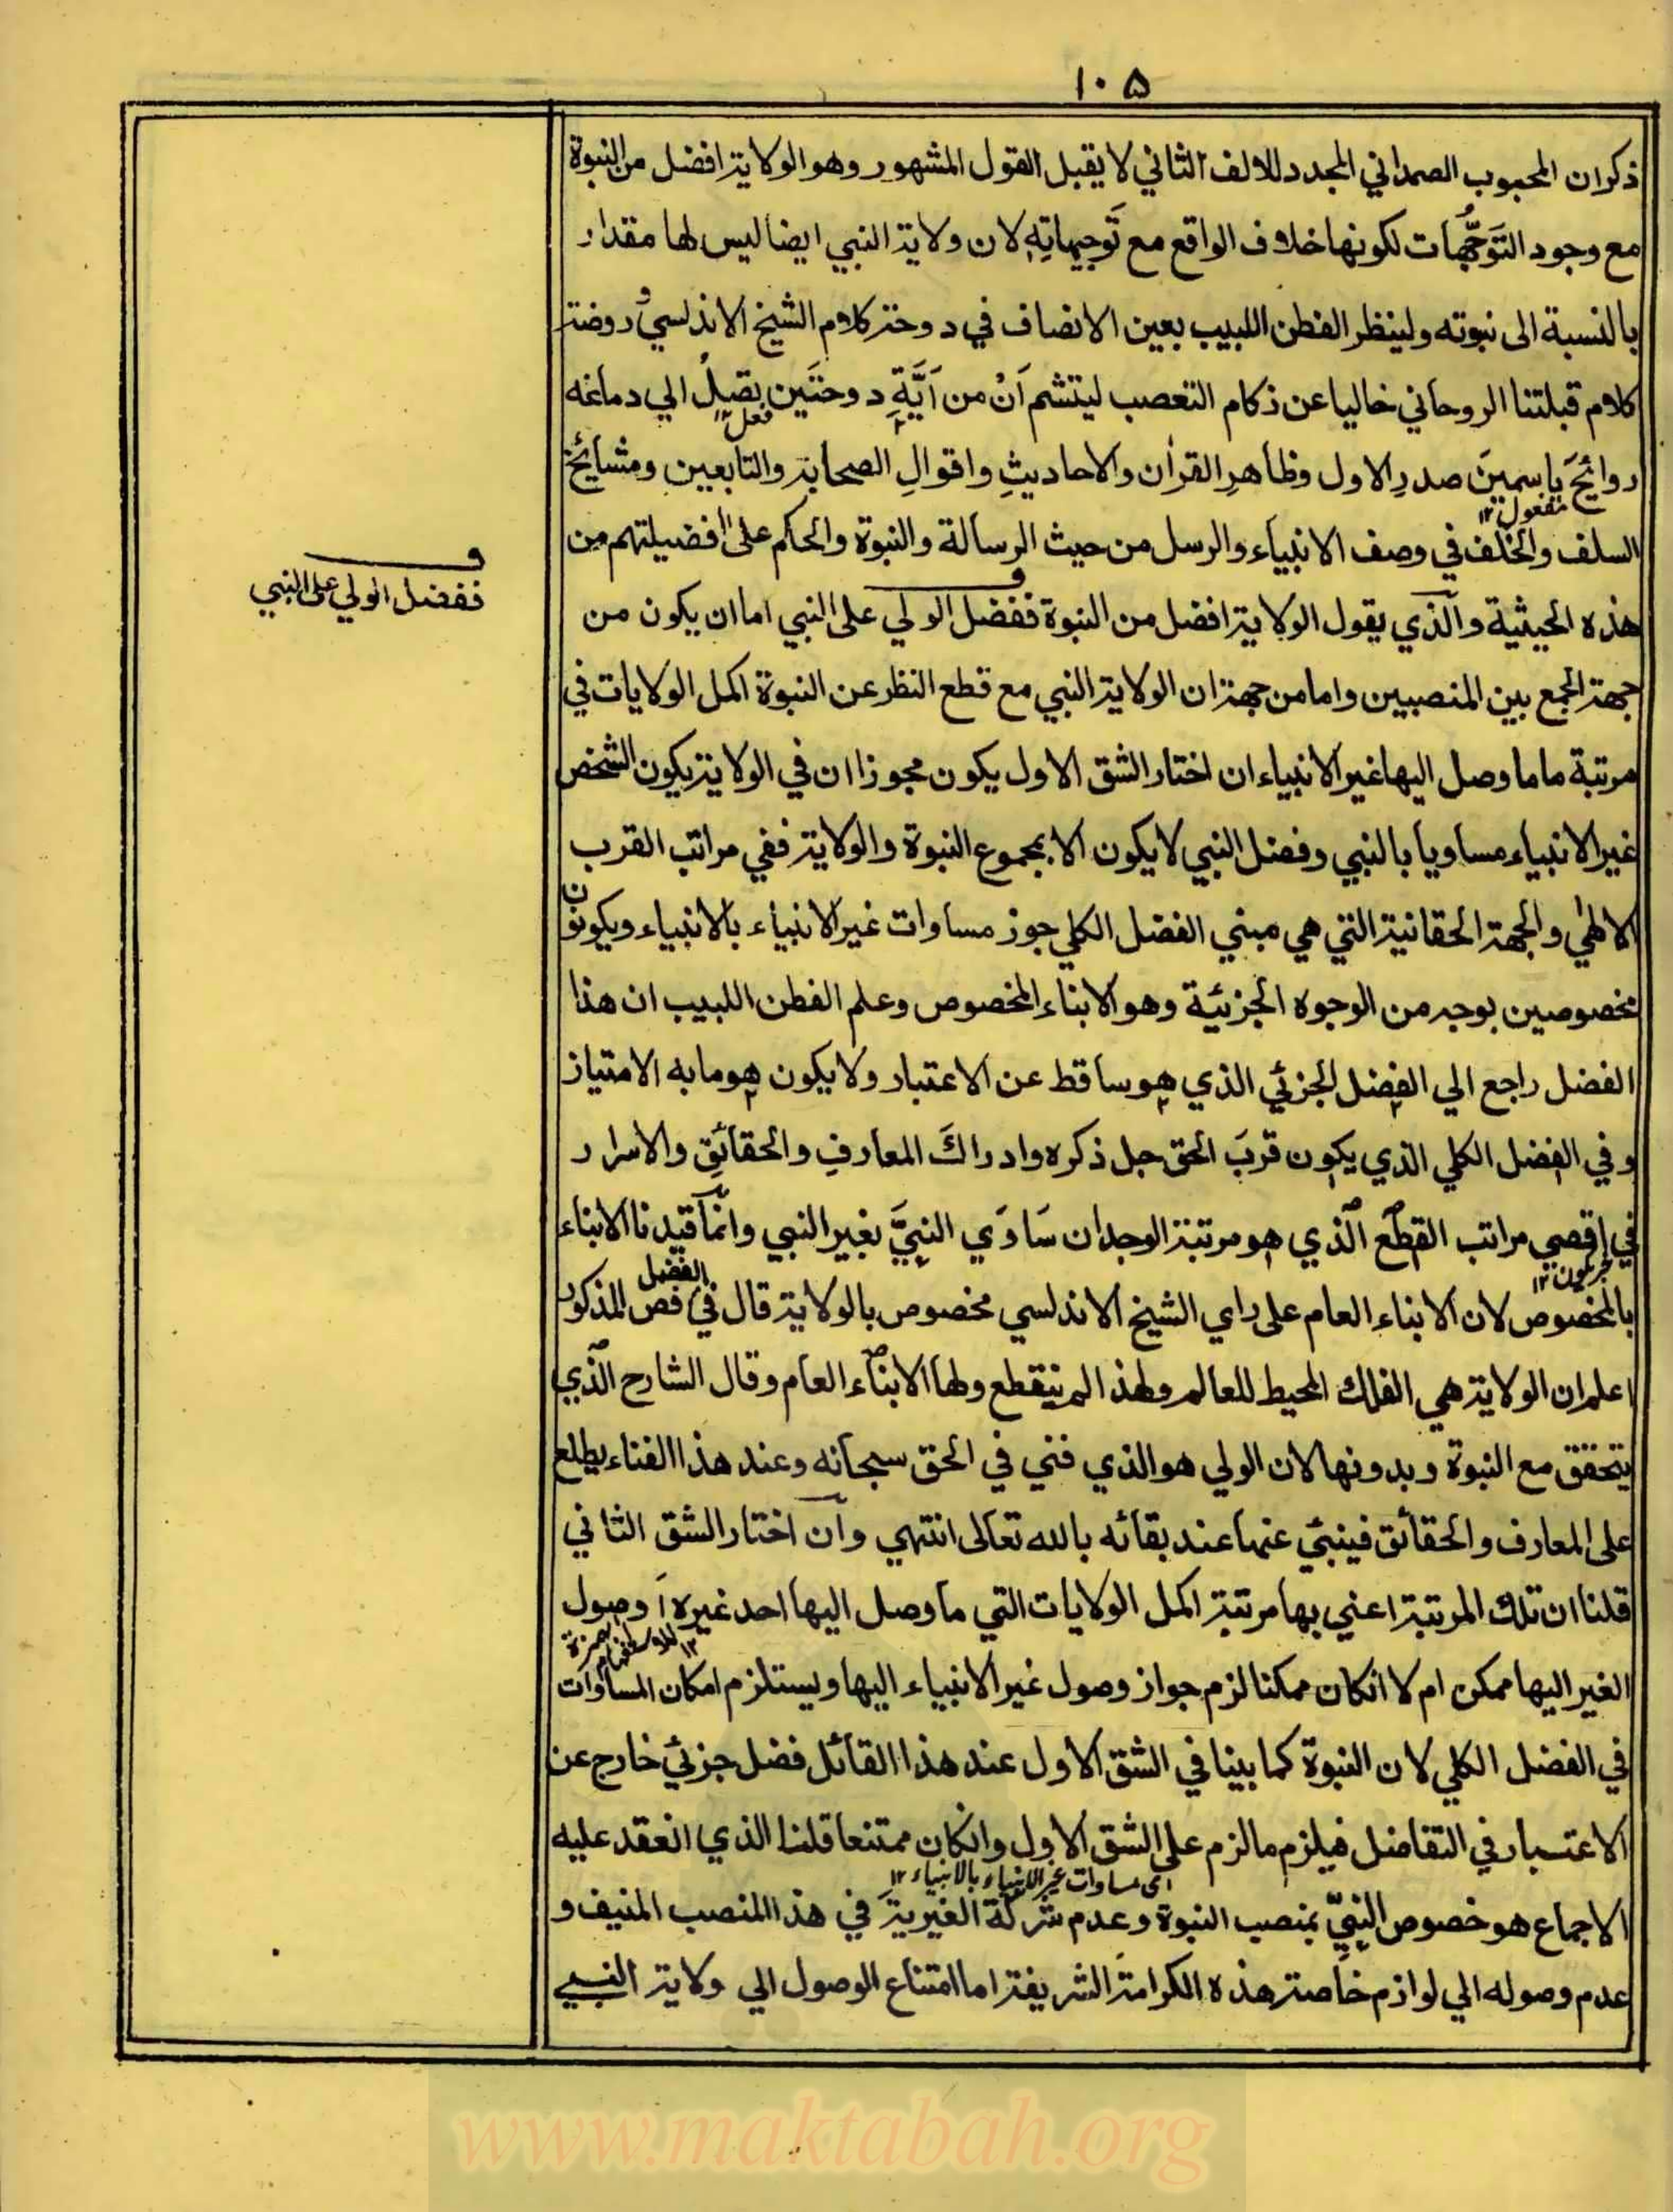 ١٠٥
ذكر ان المحبوب الصمداني المجدد للالف الثاني لا يقبل القول المشهور وهو الولاية افضل من النبوة
مع وجود التَوَجُّهَات لكونها خلاف الواقع مع تَوجِيهاتِهِ لان ولاية النبي ايضا ليس لها مقدار
بالنسبة الى نبوته ولينظر الفطن اللبيب بعين الانصاف في دوحة كلام الشيخ الاندلسي وروضة
كلام قبلتنا الروحاني خاليا عن زكام التعصب ليتشم اَنْ من اَيَّةِ دوحتَين يصِلُ الي دماغه
فعل ١٢
روائحَ ياسمينَ صدرِ الاول وظاهرِ القراٰن والاحاديثِ واقوالِ الصحابة والتابعين ومشائخ
مفعول ١٢
السلف والخلف في وصف الانبياء والرسل من حيث الرسالة والنبوة والحكم على افضيلتهم من
هذه الحيثية والذي يقول الولاية افضل من النبوة ففضل الولي على النبي اما ان يكون من
ف
ففضل الولي على النبي
جهة الجمع بين المنصبين واما من جهة ان الولاية النبي مع قطع النظر عن النبوة اكمل الولايات في
مرتبة ما ما وصل اليها غير الانبياء ان اختار الشق الاول يكون مجوزا ان في الولاية يكون الشخص
غير الانبياء مساويا بالنبي وفضل النبي لا يكون الا بمجموع النبوة والولاية ففي مراتب القرب
الالهي والجهة الحقانية التي هي مبني الفضل الكلي جوز مساوات غير الانبياء بالانبياء ويكونون
مخصوصين بوجه من الوجوه الجزئية وهو الانباء المخصوص وعلم الفطن اللبيب ان هذا
الفضل راجع الي الفضل الجزئي الذي هو ساقط عن الاعتبار ولا يكون هو ما به الامتياز
وفي الفضل الكلي الذي يكون قربَ الحق جل ذكره وادراكَ المعارفِ والحقائقِ والاسرار
في اقصي مراتب القطع الذي هو مرتبة الوجدان سَاوَي النبيَّ بغير النبي وانما قيدنا الانباء
خبر يكون ١٢
الفضل
بالمخصوص لان الانباء العام على راي الشيخ الاندلسي مخصوص بالولاية قال في فص المذكور
اعلم ان الولاية هي الفلك المحيط للعالم ولهذا لم ينقطع ولها الانباء العام وقال الشارح الذي
يتحقق مع النبوة وبدونها لان الولي هو الذي فني في الحق سبحانه وعند هذا الفناء يطلع
على المعارف والحقائق فينبئ عنها عند بقائه بالله تعالى انتهي وان اختار الشق الثاني
قلنا ان تلك المرتبة اعني بها مرتبة اكمل الولايات التي ما وصل اليها احد غيره اَ وصول
همزة للاستفهام ١٢
الغير اليها ممكن ام لا انكان ممكنا لزم جواز وصول غير الانبياء اليها ويستلزم امكان المساوات
في الفضل الكلي لان النبوة كما بينا في الشق الاول عند هذا القائل فضل جزئي خارج عن
الاعتبار في التفاضل فيلزم ما لزم على الشق الاول وانكان ممتنعا قلنا الذي انعقد عليه
اى مساوات غير الانبياء بالانبياء ١٢
الاجماع هو خصوص النبيّ بمنصب النبوة وعدم شركة الغيرية في هذا المنصب المنيف و
عدم وصوله الي لوازم خاصة هذه الكرامة الشريفة اما امتناع الوصول الي ولاية النبي
www.maktabah.org